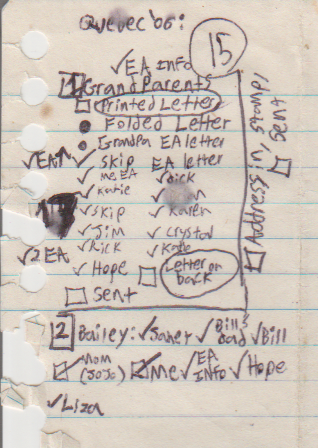 Quevec '06:
15
✓EA Info
1 Grand Parents
Printed Letter
Folded Letter
Grandpa EA letter
✓EA ✓ Skip EA letter
✓ me EA ✓ Rick
✓ Katie
✓ Skip ✓ Karen
✓ Jim ✓ Crystal
✓2 EA ✓ Rick ✓ Katie
✓ Hope Letter on back
Sent
Address, Stamps
Sent
2 Bailey: ✓ ✓Bill's Dad ✓Bill
Mom (JoJo) ✓Me ✓EA INFO ✓Hope
✓Liza